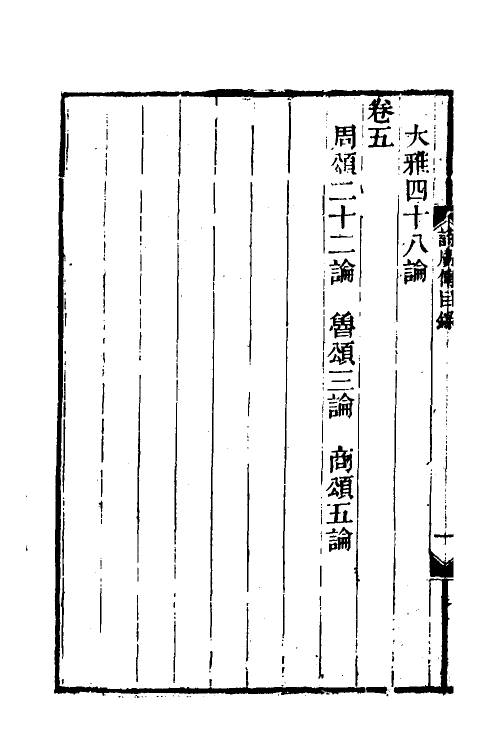 大雅四十八論
卷五
周頌二十二論　魯頌三論　商頌五論
詩廣傳目錄